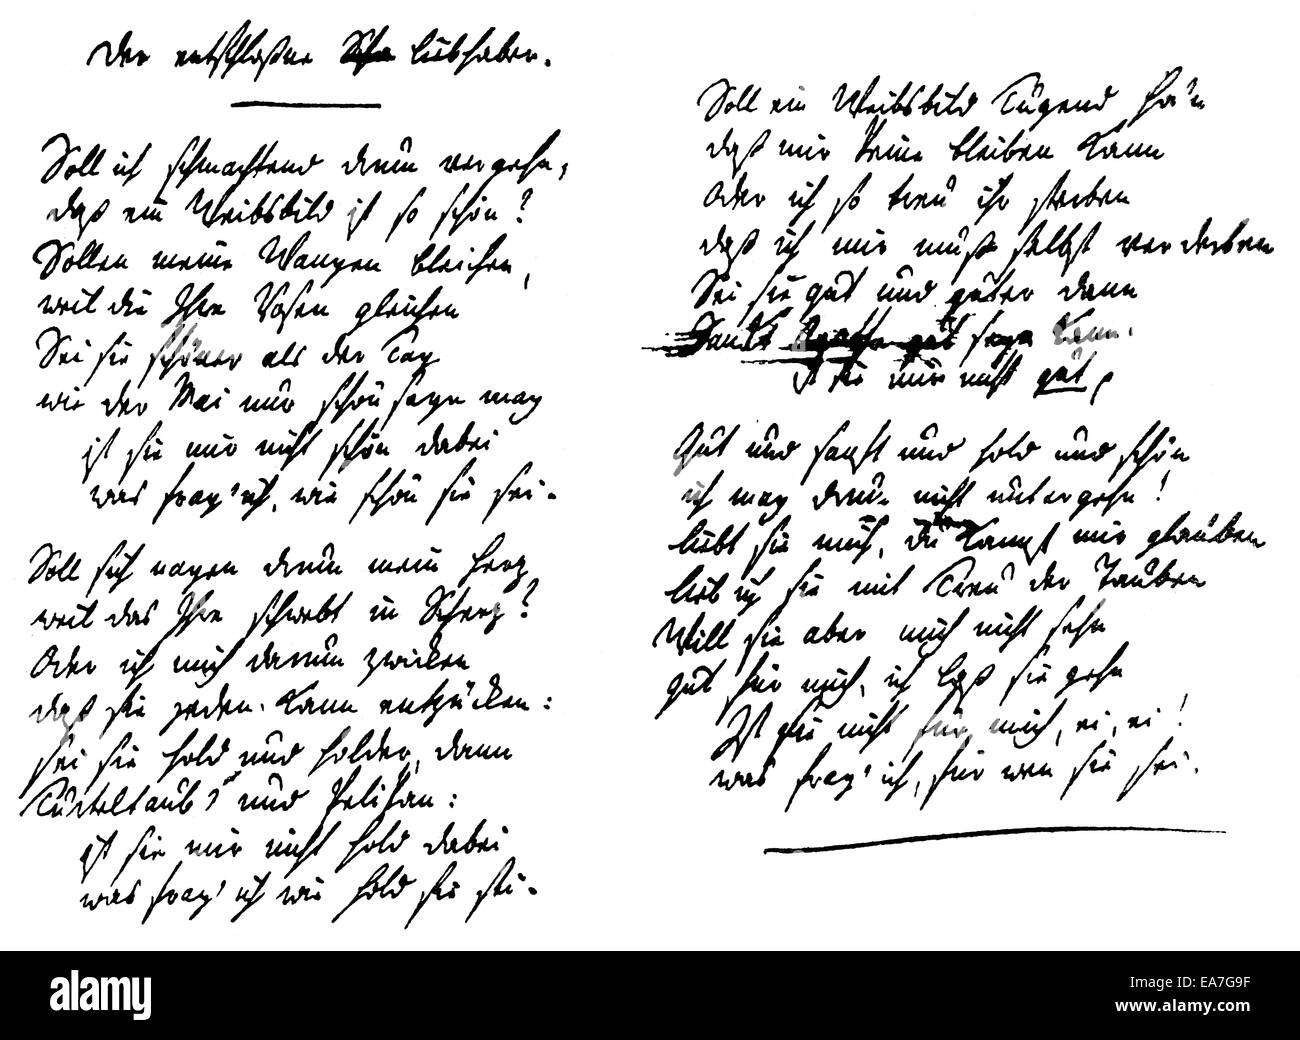 Der entschloßne Scha Liebhaber.
Soll ich schmachtend drum vergehn,
daß ein Weibsbild ist so schön?
Sollen meine Wangen bleichen,
weil die Ihre Rosen gleichen
Sei sie schöner als der Tag
wie der Mai nur schön seyn mag
ist sie mir nicht schön dabei
was frag' ich, wie schön sie sei.
Soll sich nagen drum mein Herz
weil das Ihre schwebt in Scherz?
Oder ich mich darum zwicken
daß sie jeden kann entzücken:
sei sie hold und holder, dann
Turteltaub' und Pelikan:
ist sie mir nicht hold dabei
was frag' ich wie hold sie sei.
Soll ein Weibsbild Tugend ha'n
daß mir keine bleiben kann
Oder ich so treu ihr sterben
daß ich mir muß selbst verderben
Sei sie gut und guter dann
Sankt Agatha gut seyn kann.
ist sie mir nicht gut,
Gut und sanft und hold und schön
ich mag drum nicht untergehn!
liebt sie mich, du kannst mir glauben
lieb ich sie mit Treu der Tauben
Will sie aber mich nicht sehn
gut für mich, ich laß sie gehn
Ist sie nicht für mich, ei, ei!
was frag' ich, für wen sie sei.
alamy
Image ID: EA7G9F
www.alamy.com